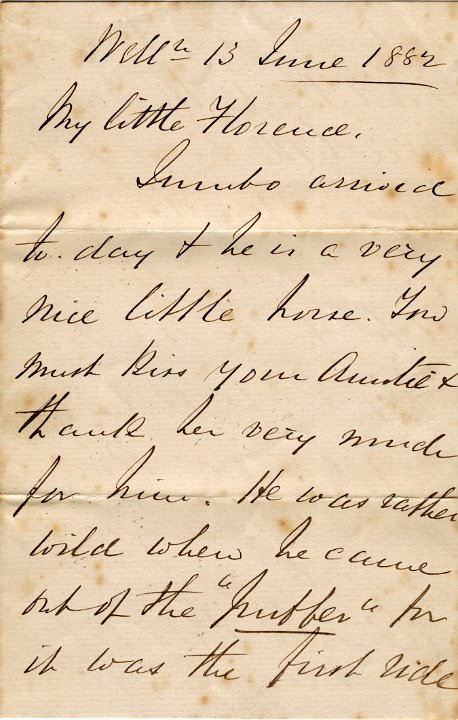 Well<sup>n</sup> 13 June 1882
My little Florence,
Jumbo arrived
to-day & he is a very
nice little horse. You
must kiss your Auntie &
thank her very much
for him. He was rather
wild when he came
out of the "puffer" for
it was the first ride